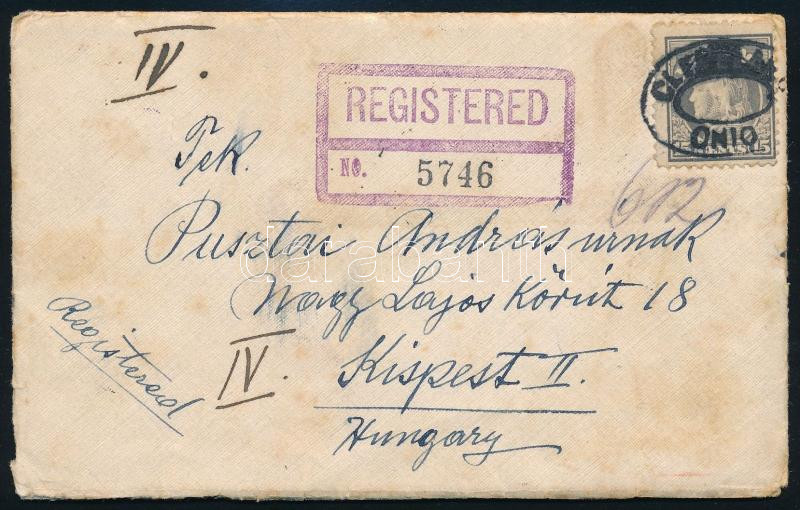 IV.
REGISTERED
No. 5746
CLEVELAND
OHIO
612
Tek.
Pusztai András urnak
Nagy Lajos Körút 18
IV. Kispest II.
Hungary
Registered
darabanth